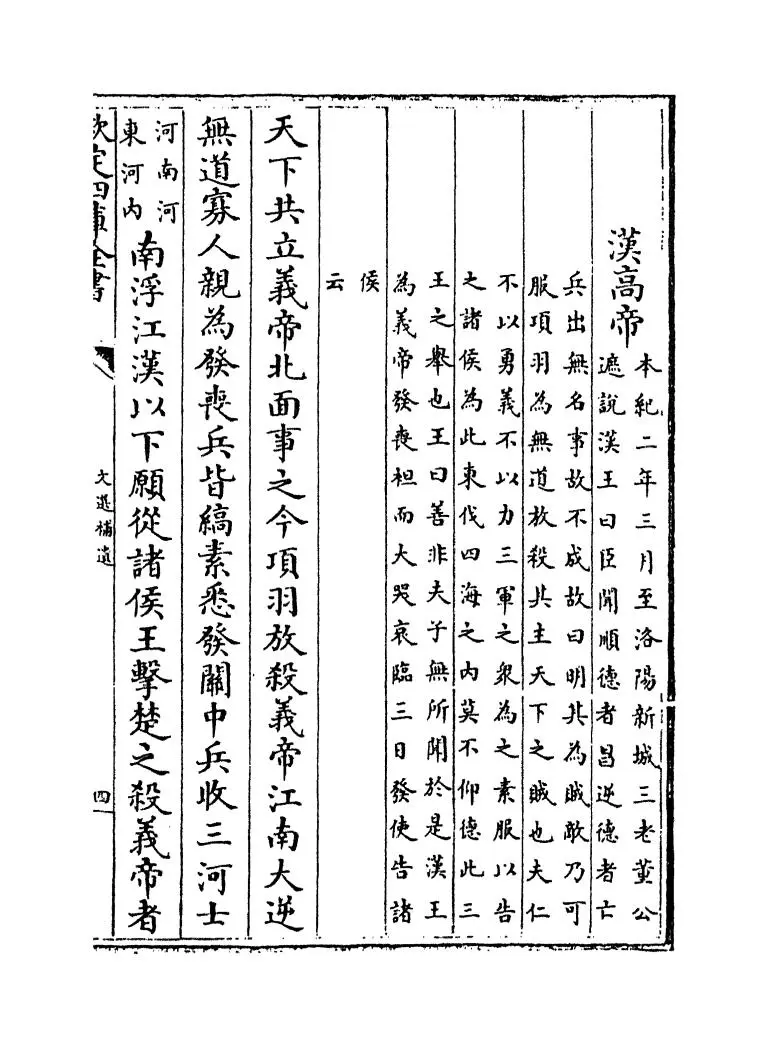 漢高帝
本紀二年三月至洛陽新城三老董公
遮說漢王曰臣聞順德者昌逆德者亡
兵出無名事故不成故曰明其為賊敵乃可
服項羽為無道放殺其主天下之賊也夫仁
不以勇義不以力三軍之衆為之素服以告
之諸侯為此東伐四海之内莫不仰德此三
王之舉也王曰善非夫子無所聞於是漢王
為義帝發喪袒而大哭哀臨三日發使告諸
侯
云
天下共立義帝北面事之今項羽放殺義帝江南大逆
無道寡人親為發喪兵皆縞素悉發關中兵收三河士
河南河
東河内
南浮江漢以下願從諸侯王擊楚之殺義帝者
欽定四庫全書
文選補遺
四